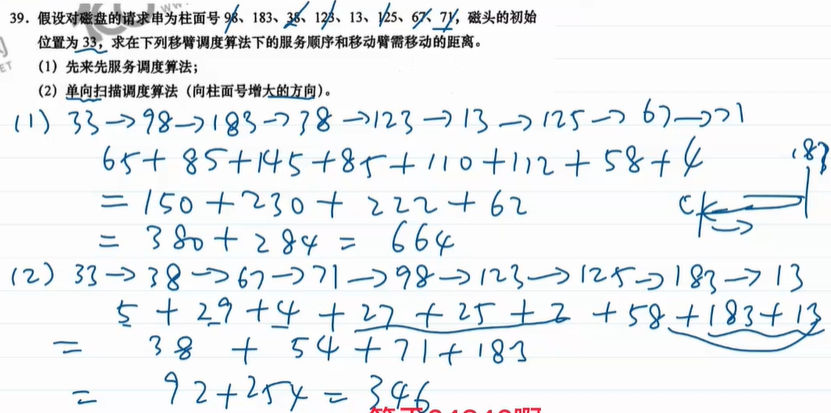 39. 假设对磁盘的请求串为柱面号 98、183、38、123、13、125、67、71，磁头的初始
位置为 33，求在下列移臂调度算法下的服务顺序和移动臂需移动的距离。
(1) 先来先服务调度算法；
(2) 单向扫描调度算法（向柱面号增大的方向）。
(1) 33→98→183→38→123→13→125→67→71
65+85+145+85+110+112+58+4
=150+230+222+62
=380+284=664
183
(2) 33→38→67→71→98→123→125→183→13
5+29+4+27+25+2+58+183+13
= 38+54+71+183
= 92+254=346